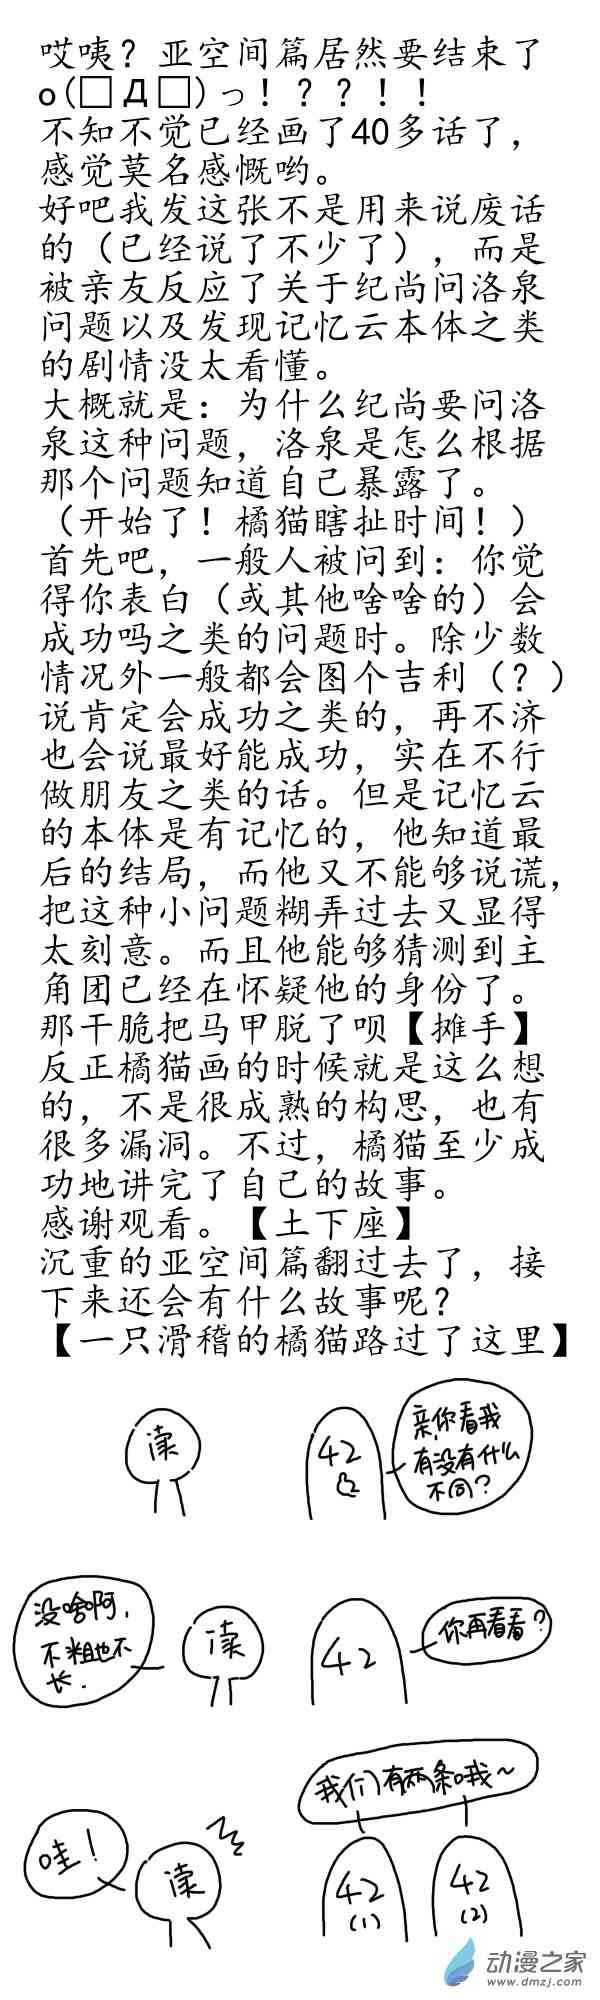 哎咦？亚空间篇居然要结束了
o(□Д□)っ！？？！！
不知不觉已经画了40多话了，
感觉莫名感慨哟。
好吧我发这张不是用来说废话
的（已经说了不少了），而是
被亲友反应了关于纪尚问洛泉
问题以及发现记忆云本体之类
的剧情没太看懂。
大概就是：为什么纪尚要问洛
泉这种问题，洛泉是怎么根据
那个问题知道自己暴露了。
（开始了！橘猫瞎扯时间！）
首先吧，一般人被问到：你觉
得你表白（或其他啥啥的）会
成功吗之类的问题时。除少数
情况外一般都会图个吉利（？）
说肯定会成功之类的，再不济
也会说最好能成功，实在不行
做朋友之类的话。但是记忆云
的本体是有记忆的，他知道最
后的结局，而他又不能够说谎，
把这种小问题糊弄过去又显得
太刻意。而且他能够猜测到主
角团已经在怀疑他的身份了。
那干脆把马甲脱了呗【摊手】
反正橘猫画的时候就是这么想
的，不是很成熟的构思，也有
很多漏洞。不过，橘猫至少成
功地讲完了自己的故事。
感谢观看。【土下座】
沉重的亚空间篇翻过去了，接
下来还会有什么故事呢？
【一只滑稽的橘猫路过了这里】
读
42
亲，你看我
有没有什么
不同？
没啥啊，
不粗也不
长.
读
42
你再看看？
我们有两条哦～
哇！
读
42
(1)
42
(2)
动漫之家
www.dmzj.com